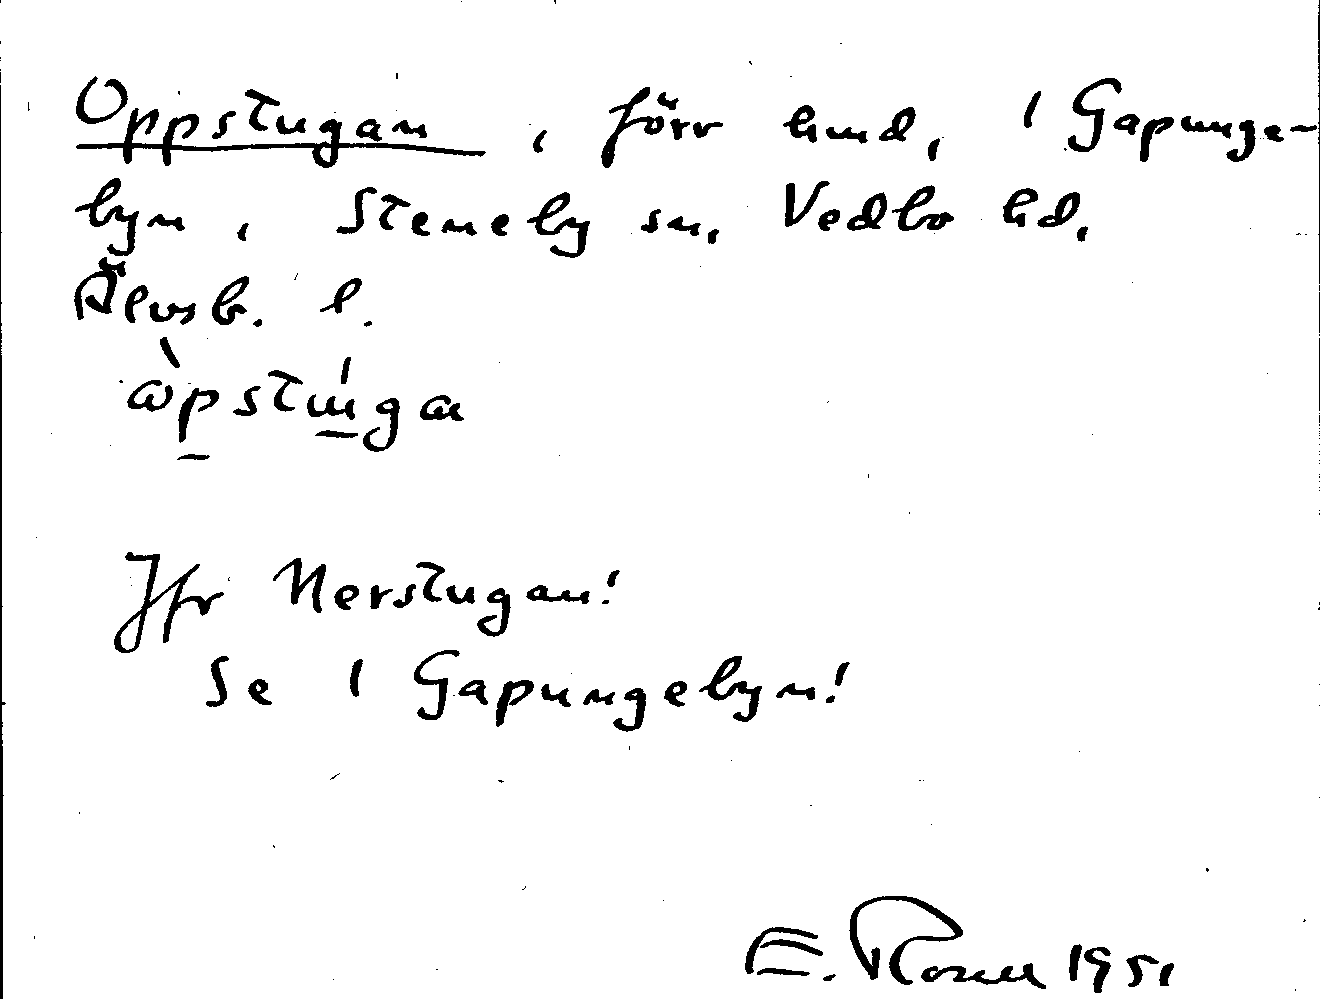 Oppstugan, förr hmd, 1 Gapunge-
byn, Steneby sn, Vedbo hd,
Älvsb. l.
ὼpstú̱gan
Jfr Nerstugan!
Se 1 Gapungebyn!
E. Rosell 1951